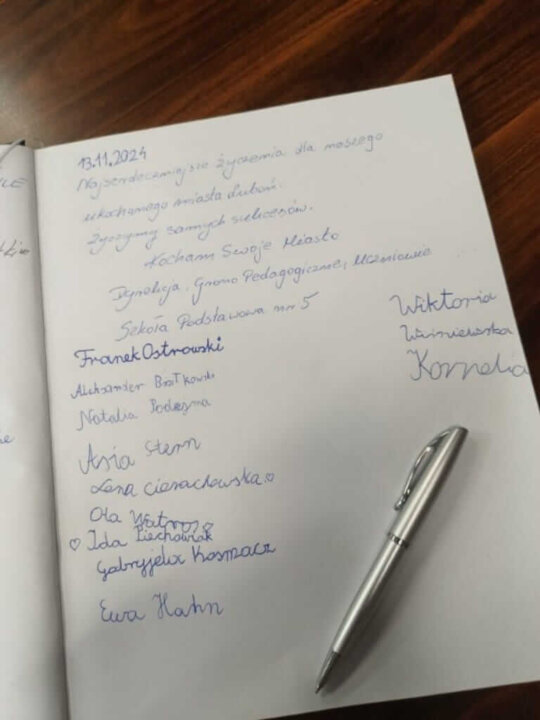 13.11.2024
Najserdeczniejsze życzenia dla naszego
ukochanego miasta Luboń.
Życzymy samych sukcesów.
Kocham Swoje Miasto
Dyrekcja, Grono Pedagogiczne, Uczniowie
Szkoła Podstawowa nr 5
Franek Ostrowski
Aleksander
Natalia
Asia Stern
Lena Cierachowska
Ola Watros
Ida Piechowiak
Gabryjela Kosmacz
Ewa Hahn
Wiktoria
Wiśniewska
Kornelia